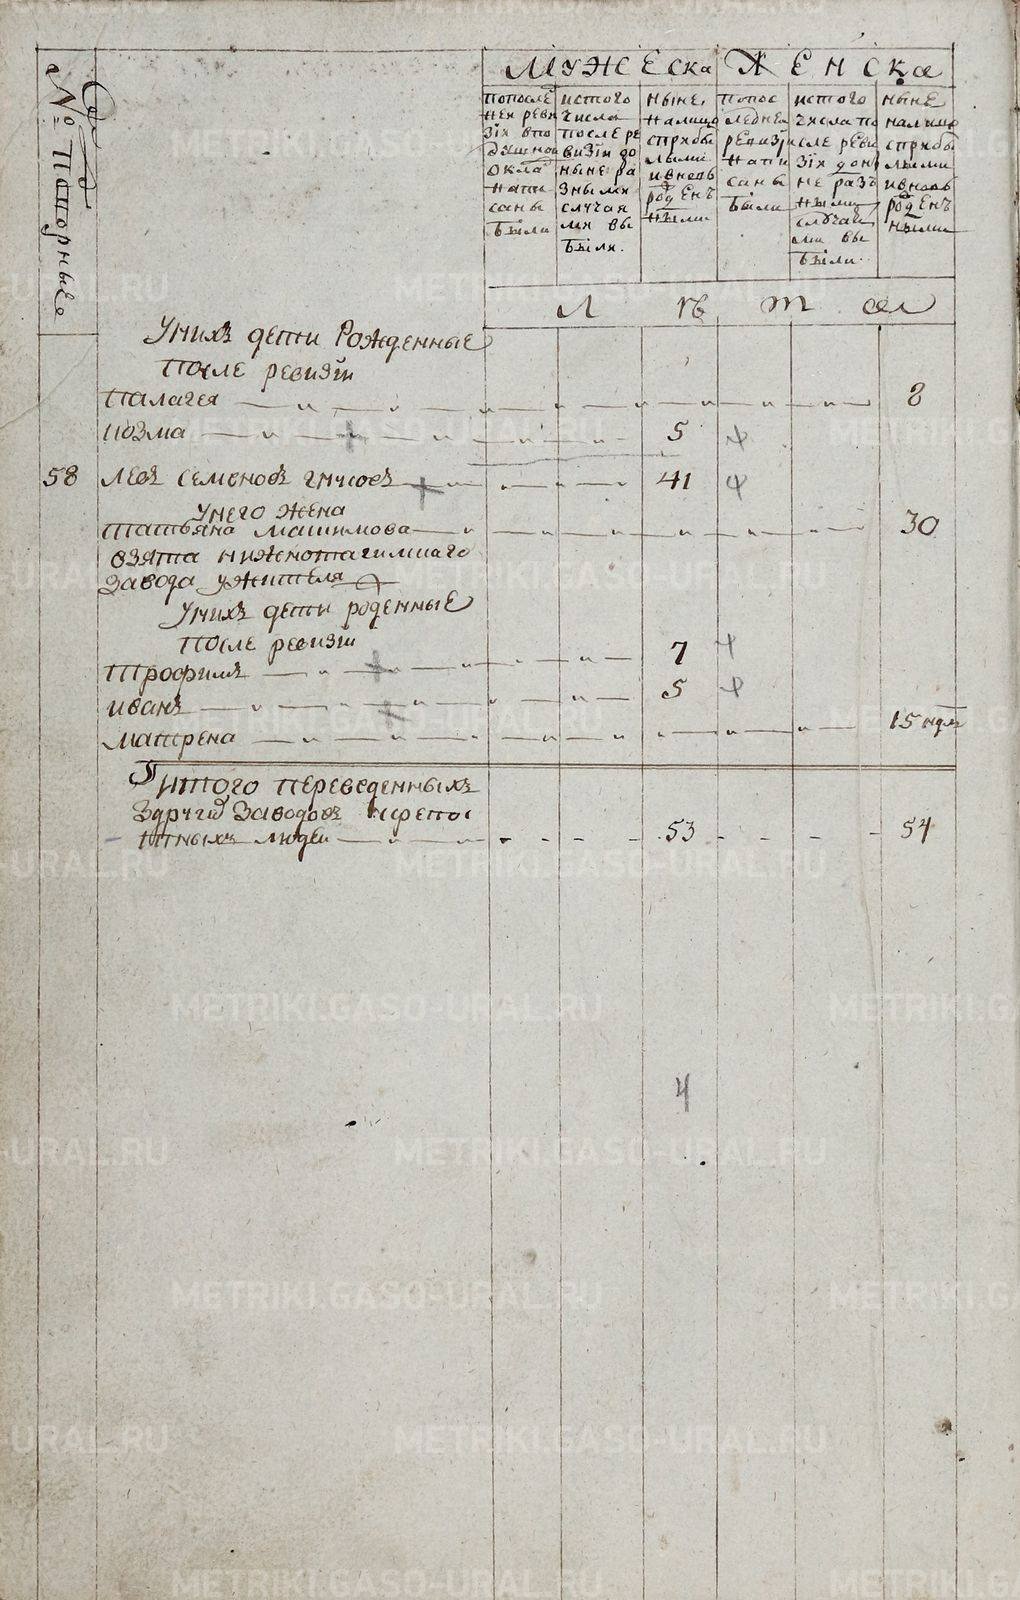 № Папорные
МУЖЕска
ЖЕНСКа
попосле
ней реви
зiи впо
душной
окла
напи
саны
были
истого
числа
после ре
визiи до
ныне ра
зными
случая
ми вы
были.
ныне,
налицо
сприбы
лыми
ивновь
рожденъ
ными
попос
ледней
ревизiи
напи
саны
были
истого
числа по
сле реви
зiи доны
не разъ
ными
случаи
ми вы
были.
ныне
налицо
сприбы
лыми
ивновь
рожденъ
ными
Л ѣ т а
Унихъ дети Рожденные
После ревизiи
Палагея 8
Козма 5
58 Левъ Семеновъ 41
Унего жена
Татьяна Максимова 30
взята нижнотагилскаго
завода ужителя
Унихъ дети роденные
После ревизiи
Трофимъ 7
иванъ 5
матрена 15 недль
итого переведенныхъ
здругихъ заводовъ крепос
тныхъ людей 53 54
4
METRIKI.GASO-URAL.RU